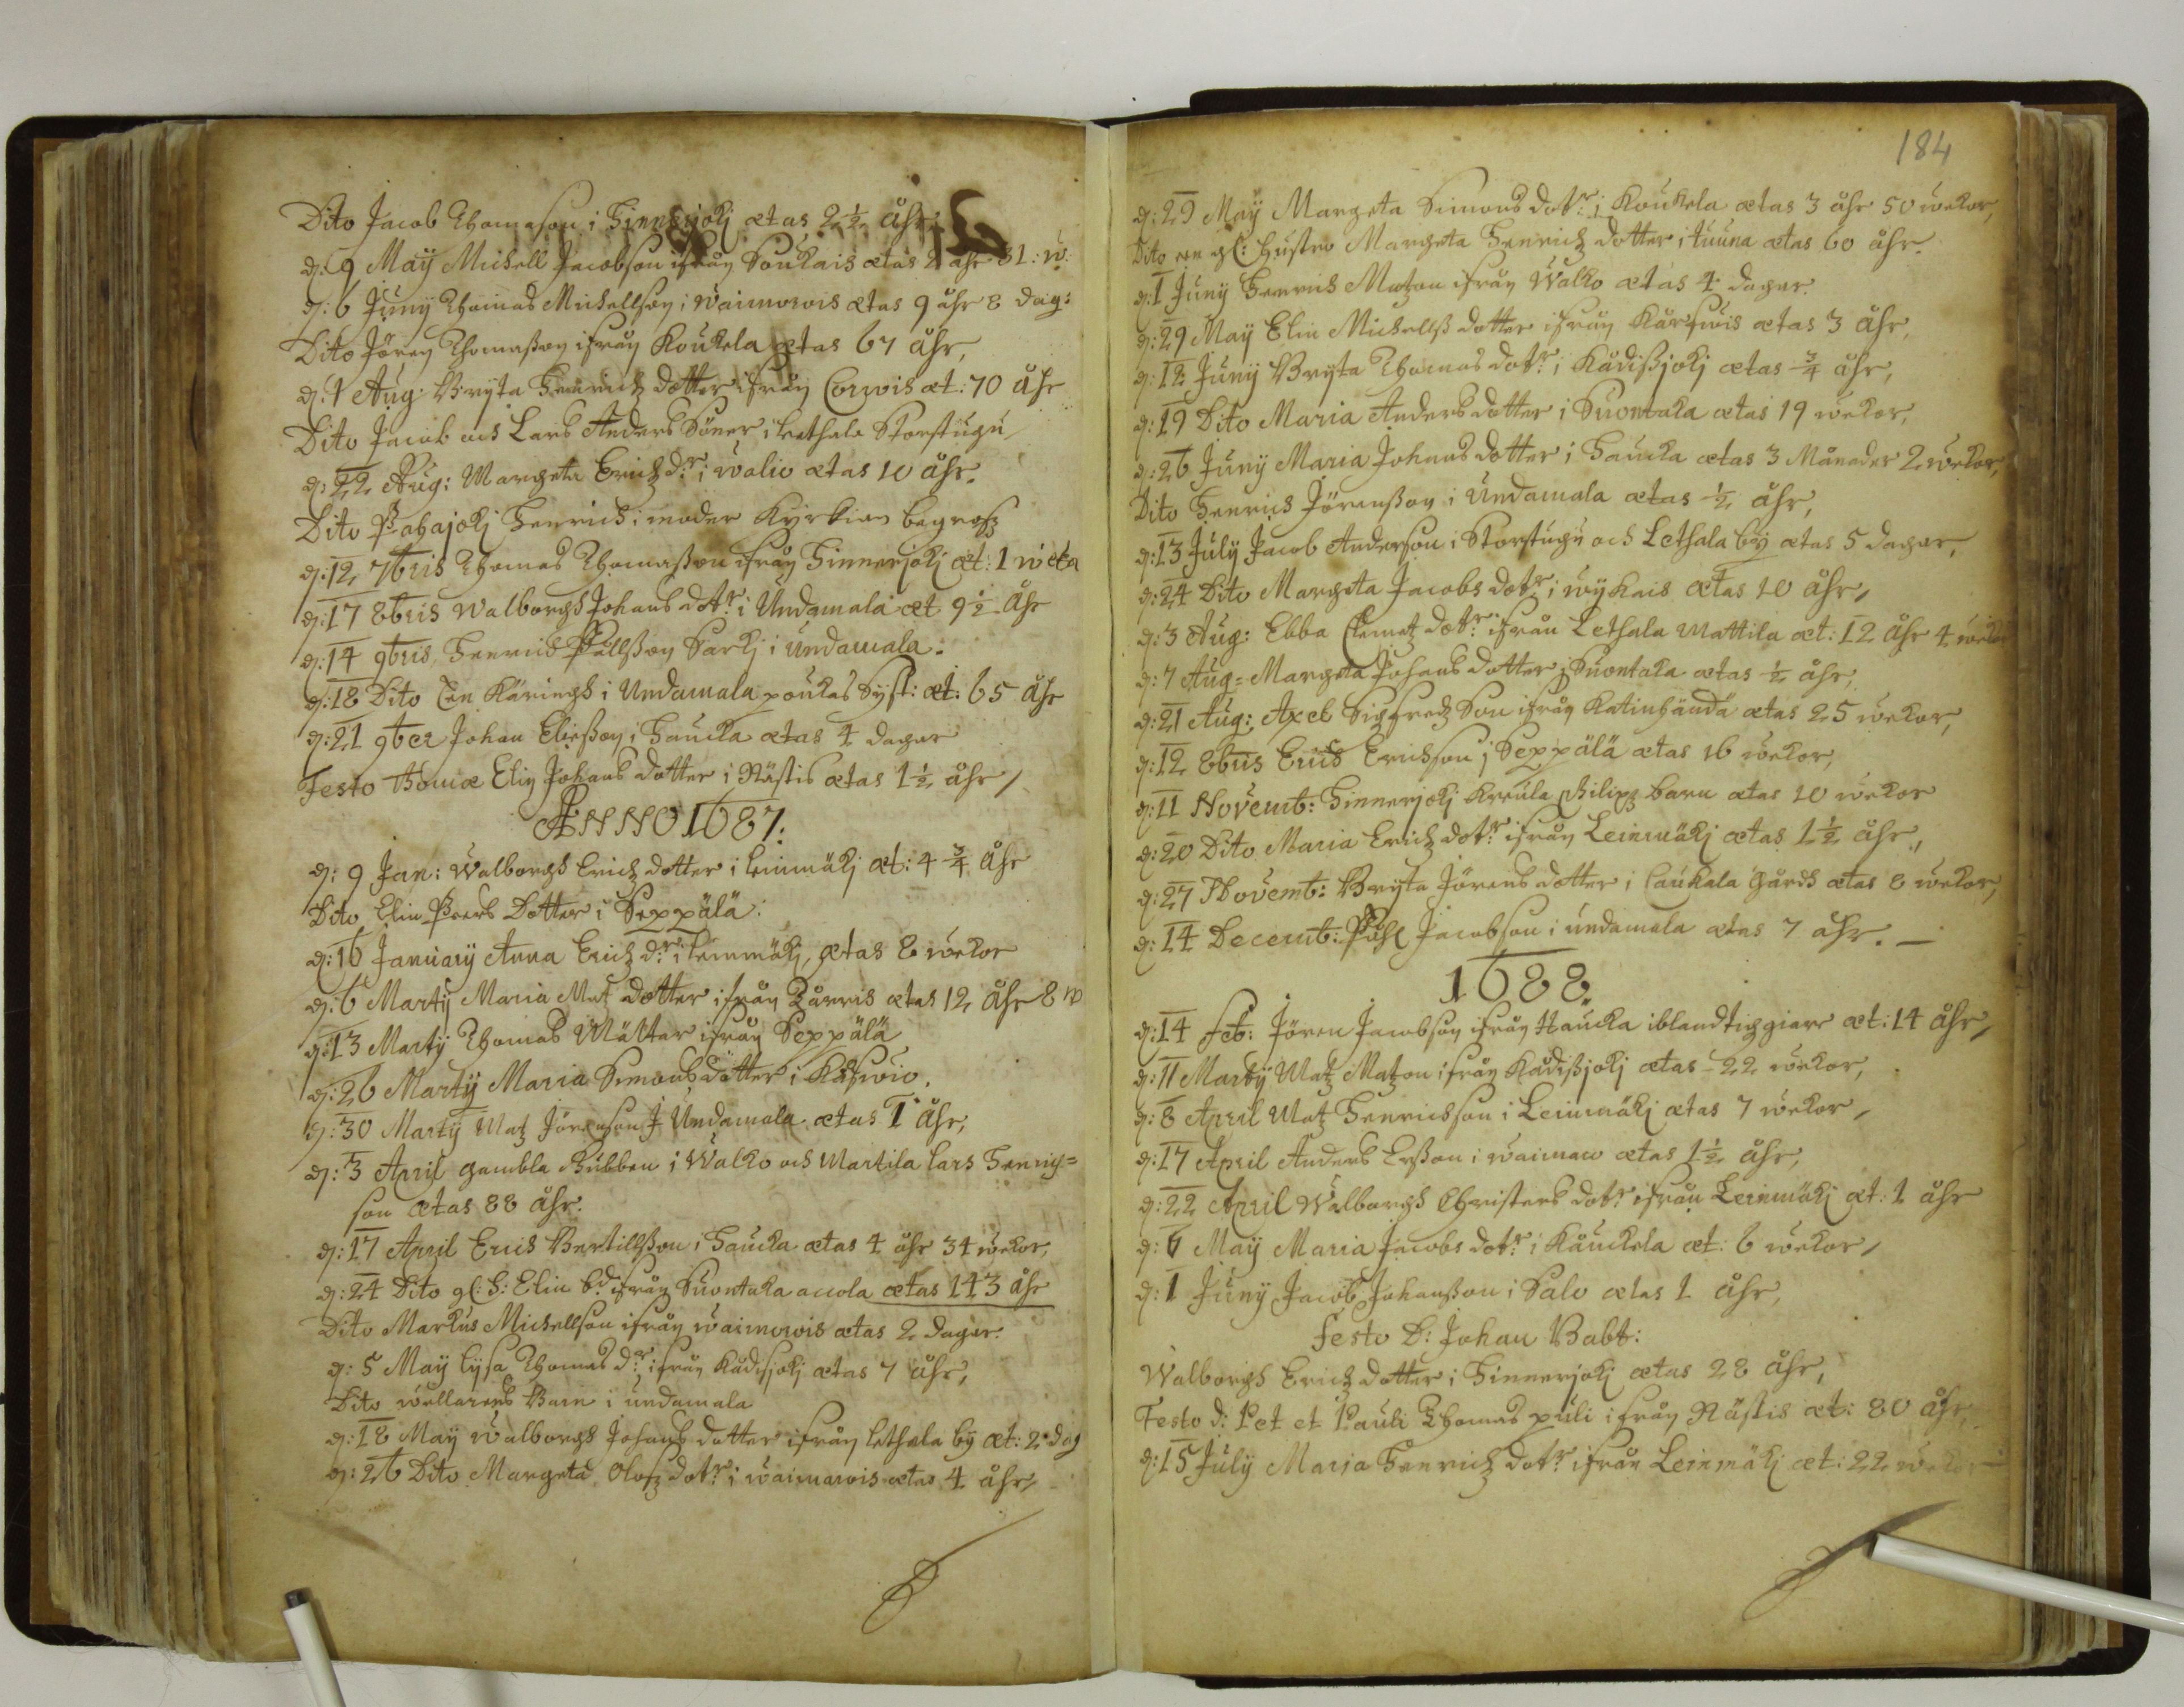 Dito Jacob Thomason i Hinnerjokj ætas 2 ½ åhr
d: 9 Maÿ Mickell Jacobson ifrån Soukais ætas 2 åhr 31: w:
d: 6 Junÿ Thomas Mickellson i waimowis ætas 9 åhr 8 dag:
Dito Jören Thomasson ifrån Koukela ætas 67 åhr,
d: 1 Aug: Brÿta Henrichz dotter ifrån Corwis æt: 70 åhr
Dito Jacob och Lars Anders Söner i Lethala Storstugu
d: 22 Aug: Margeta Erichz dr. i walio ætas 10 åhr.
Dito Pahajokj Henrich i moder Kÿrkian begrofz
d: 12 7bris Thomas Thomasson ifrån Hinnerjokj æt: 1 wicka
d: 17 8bris Walborgh Johans dotr. i Undamala æt 9 ½ åhr
d: 14 9bris, Henrich Pållsson Sarkj i undamala:
d: 18 Dito Een Käringh i Undamala poukas Syst: æt: 65 åhr
d: 21 9ber Johan Elisson i Haucka ætas 4 dagar
Festo Thomæ Elin Johans dotter i Rästis ætas 1 ½ åhr,
ANNO 1687:
d: 9 Jan: Walborgh Erichz dotter i Leinmäkj æt: 4 ¾ åhr
Dito Elin Peers Dotter i Seppälä:
d: 16 Januarÿ Anna Erichz dr. i Leinmäkj, ætas 8 wekor
d: 6 Martÿ Maria Matz dotter ifrån Kårris ætas 12 åhr 8 w
d: 13 Martÿ Thomas Mälter ifrån Seppälä
d: 26 Martÿ Maria Simons dotter i
d: 30 Martÿ Matz Jörenson J Undamala ætas 1 åhr,
d: 3 April gambla Gubben i Walko och Martila Lars Henrich=
son ætas 88 åhr.
d: 17 April Erich Bertillsson i Haucka ætas 4 åhr 34 wekor,
d: 24 Dito gl: h: Elin ifrån Suontaka accola ætas 143 åhr
Dito Markus Mickellson ifrån waimowis ætas 2 dagar.
d: 5 Maÿ Lÿsa Thomas dr. ifrån Kådisjokj ætas 7 åhr,
Dito wällarens Barn i undamala
d: 18 Maÿ Walborgh Johans dotter ifrån Lethala bÿ æt: 2 dag
d: 26 Dito Margeta Olofz dotr. i waimarois ætas 4 åhr,
184
d: 29 Maÿ Margeta Simons dotr. i Koukela ætas 3 åhr 50 wekor,
Dito een gl: hustro Margeta Henrichz dotter i tuuna ætas 60 åhr.
d: 1 Junÿ Henrich Matzon ifrån Walko ætas 4 dagar.
d: 29 Maÿ Elin Mickellss dotter ifrån Kårfwis ætas 3 åhr,
d: 12 Junÿ Brÿta Thomas dotr. i Kådissjokj ætas ¾ åhr,
d: 19 Dito Maria Anders dotter i Suontaka ætas 19 wekor,
d: 26 Junÿ Maria Johans dotter i Haucka ætas 3 Månader 2 wekor,
Dito Henrich Jörensson i Undamala ætas ½ åhr,
d: 13 Julÿ Jacob Anderson i Storstugu och Lethala bÿ ætas 5 dagar,
d: 24 Dito Margeta Jacobs dotr. i wÿkais ætas 10 åhr,
d: 3 Aug: Ebba Clemetz dotr. ifrån Lethala Mattila æt: 12 åhr 4 wekor
d: 7 Aug= Margeta Johans dotter i Suontaka ætas ½ åhr,
d: 21 Aug: Axel Sigfredz Son ifrån Katinhända ætas 25 wekor,
d: 12 8bris Erich Erichson j Seppälä ætas 16 wekor,
d: 11 Novemb: Hinnerjokj Kreula Philipz barn ætas 10 wekor
d: 20 Dito Maria Erichz dotr. ifrån Leinmäkj ætas 1 ½ åhr,
d: 27 Novemb: Brÿta Jörens dotter i Caukala gårdh ætas 8 wekor,
d: 14 Decemb: Påhl Jacobson i undamala ætas 7 åhr. —
1688.
d: 14 Feb: Jören Jacobson ifrån Haucka iblandh tiggiare æt: 14 åhr,
d: 11 Martÿ Matz Matzon ifrån Kådissjokj ætas 22 wekor,
d: 8 April Matz Henrichson i Leinmäkj ætas 7 wekor,
d: 17 April Anders Ersson i waimaro ætas 1 ½ åhr,
d: 22 April Walborgh Christers dotr. ifrån Leinmäkj æt: 1 åhr
d: 6 Maÿ Maria Jacobs dotr. i Kauckela æt: 6 wekor,
d: 1 Junÿ Jacob Johansson i Salo ætas 1 åhr,
Festo D: Johan Babt:
Walborgh Erichz dotter i Hinnerjokj ætas 28 åhr,
Festo d: Pet et Pauli Thomas puli ifrån Rästis æt: 80 åhr,
d: 15 Julÿ Maria Henrichz dotr. ifrån Leinmäkj æt: 22 wekor